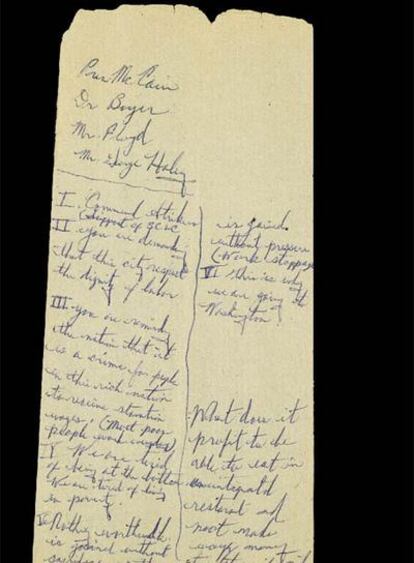 Pres McCain
Dr Boyer
Mr. Floyd
Mr. George Haley
I. Commend Strikers
(Support of SCLC
II you are demanding
that this city respect
the dignity of labor
III you are reminding
the nation that it
is a crime for people
in this rich nation
to receive starvation
wages. (Most poor
people work everyday)
IV We are tired
of being at the bottom
We are tired of living
in poverty.
V Nothing worthwhile
is gained without
is gained
without pressure
(Work stoppage
VI This is why
we are going to
Washington.
What does it
profit to be
able to eat in
an integrated
restaurant and
not make
enough money